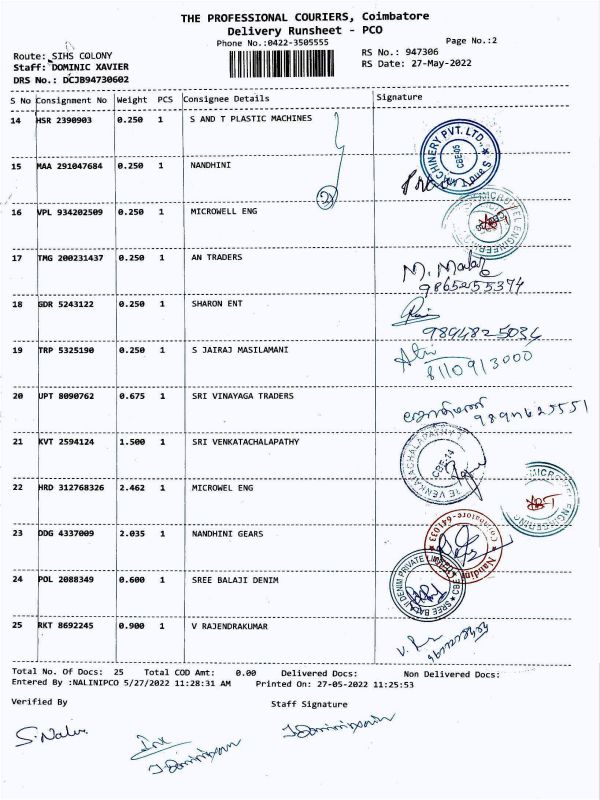 THE PROFESSIONAL COURIERS, Coimbatore
Delivery Runsheet - PCO
Phone No.:0422-3505555
Page No.:2
Route: SIHS COLONY
RS No.: 947306
Staff: DOMINIC XAVIER
RS Date: 27-May-2022
DRS No.: DCJB94730602
S No Consignment No Weight PCS Consignee Details Signature
14 HSR 2390903 0.250 1 S AND T PLASTIC MACHINES
15 MAA 291047684 0.250 1 NANDHINI
16 VPL 934202509 0.250 1 MICROWELL ENG
17 TMG 200231437 0.250 1 AN TRADERS
M. Malar
9865255374
18 GDR 5243122 0.250 1 SHARON ENT
9894825034
19 TRP 5325190 0.250 1 S JAIRAJ MASILAMANI
8110913000
20 UPT 8090762 0.675 1 SRI VINAYAGA TRADERS
21 KVT 2594124 1.500 1 SRI VENKATACHALAPATHY
CBE-14
22 HRD 312768326 2.462 1 MICROWEL ENG
23 DDG 4337009 2.035 1 NANDHINI GEARS
Coimbatore-641033
24 POL 2088349 0.600 1 SREE BALAJI DENIM
SREE BALAJI DENIM PRIVATE LIMITED
25 RKT 8692245 0.900 1 V RAJENDRAKUMAR
Total No. Of Docs: 25 Total COD Amt: 0.00 Delivered Docs: Non Delivered Docs:
Entered By :NALINIPCO 5/27/2022 11:28:31 AM Printed On: 27-05-2022 11:25:53
Verified By
Staff Signature